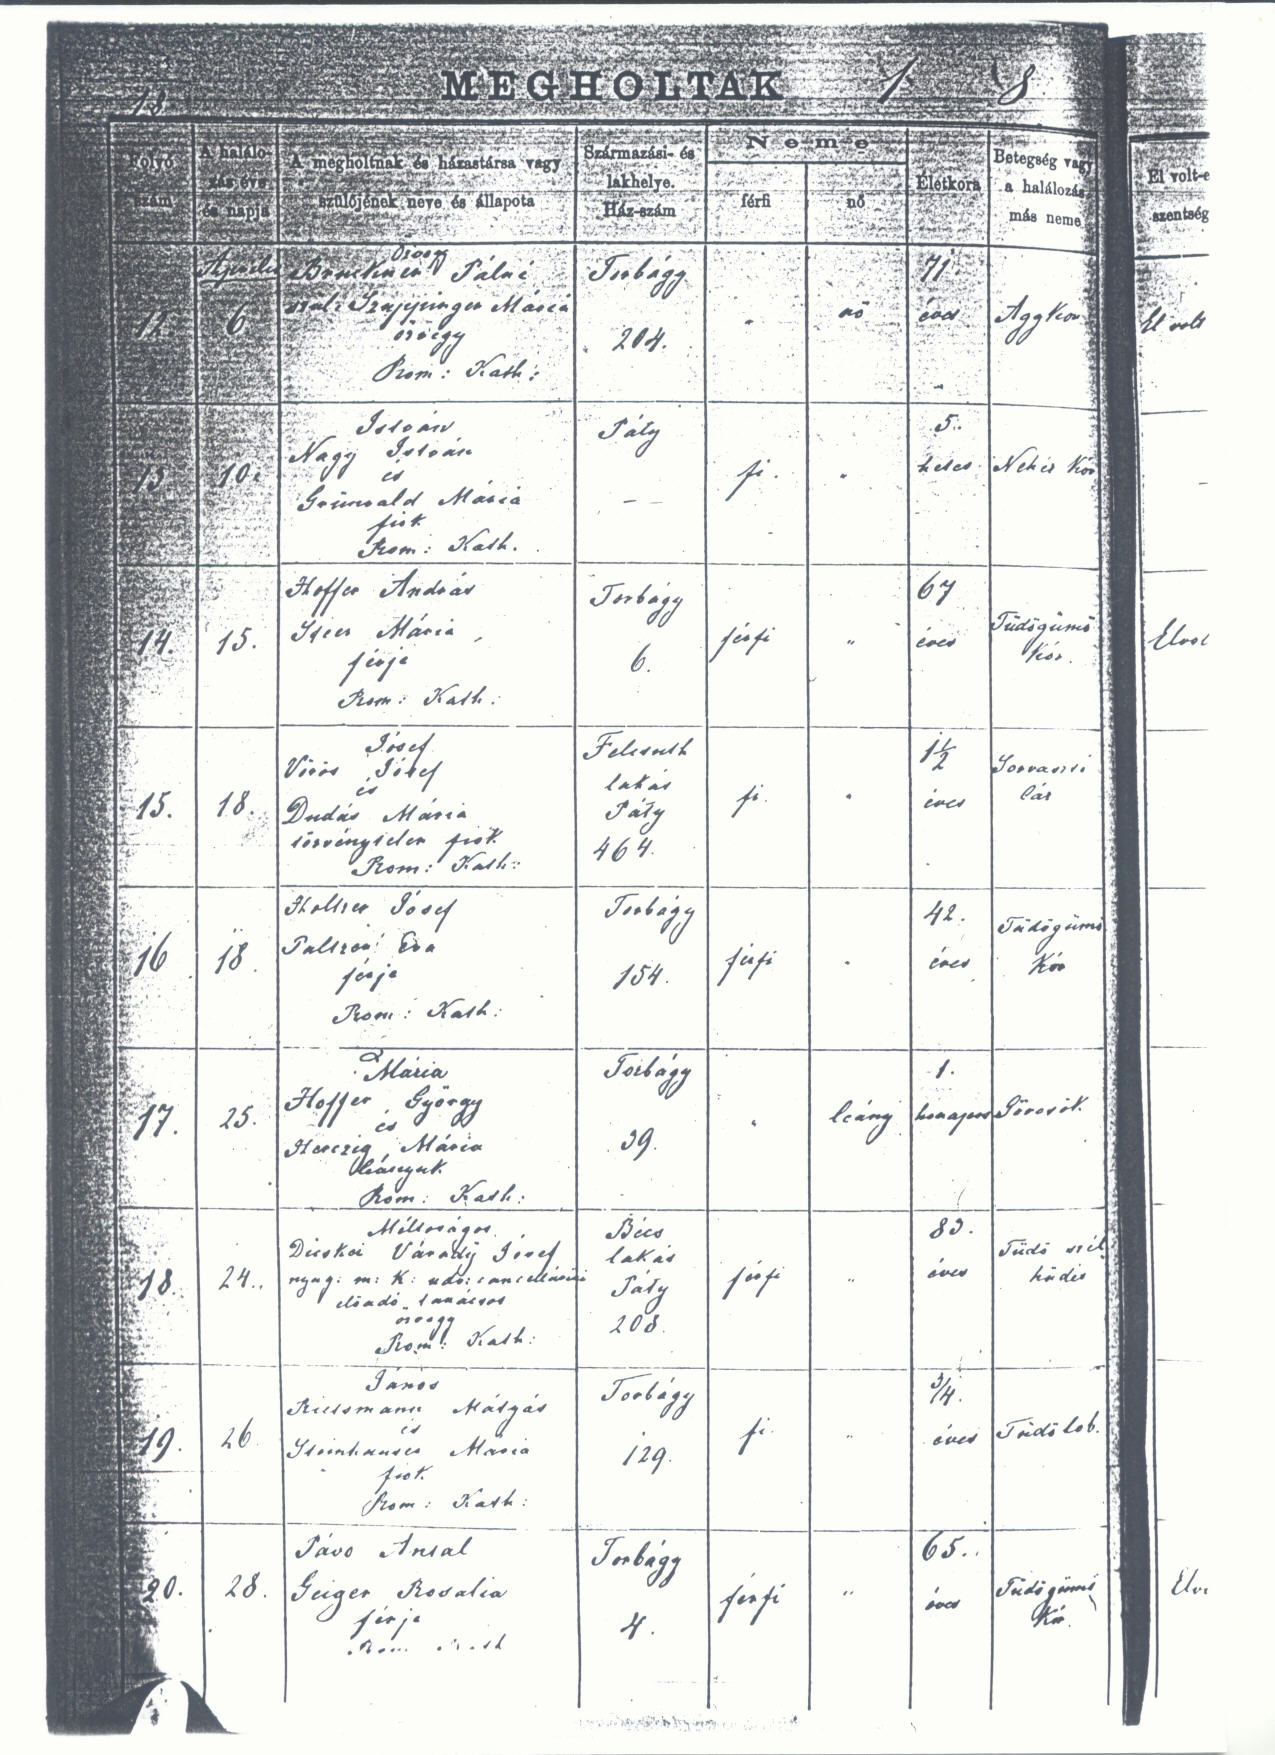 MEGHOLTAK 1 8
18.
Folyó szám
A halálozás éve és napja
A megholtnak és házastársa vagy szülőjének neve és állapota
Származási- és lakhelye. Ház-szám
Neme
férfi
nő
Életkora
Betegség vagy a halálozás más neme
El volt-e
szentség
Aprilis
12. 6
Özvegy
Pálné
szül: Mária
özvegy
Rom: Kath:
Torbágy
204.
"
nő
71.
éves
Aggkor
El volt
13 10.
István
Nagy István
és
Grünvald Mária
fiok
Rom: Kath.
Páty
— —
fi.
"
5.
hetes
Nehéz Kór
14. 15.
Hoffer András
Mária
férje
Rom: Kath:
Torbágy
6.
férfi
"
67
éves
Tüdőgümő
Kór.
Elvol
15. 18.
Jósef
Vörös Jósef
és
Dudás Mária
törvénytelen fiok
Rom: Kath:
Felcsuth
lakás
Páty
464.
fi.
"
1½
éves
Sorvasztó
láz
16 18.
Holtzer Jósef
Éva
férje
Rom: Kath:
Torbágy
154.
férfi
"
42.
éves
Tüdőgümő
Kór
17. 25.
Mária
Hoffer György
és
Herczig Mária
leányuk
Rom: Kath:
Torbágy
39.
"
leány
1.
honapos
Görcsök.
18. 24.
Méltoságos
Várady Jósef
nyug: m: K: udv: cancelláriai
előadó tanácsos
özvegy
Rom: Kath:
Bécs
lakás
Páty
208.
férfi
"
83.
éves
Tüdő szél
hüdés
19. 26.
János
Mátyás
és
Steinhauser Mária
fiok.
Rom: Kath:
Torbágy
129.
fi.
"
3/4.
éves
Tüdőlob.
20. 28.
Antal
Geiger Rosalia
férje
Rom: Kath
Torbágy
4.
férfi
"
65.
éves
Tüdőgümő
Kór.
Elvo